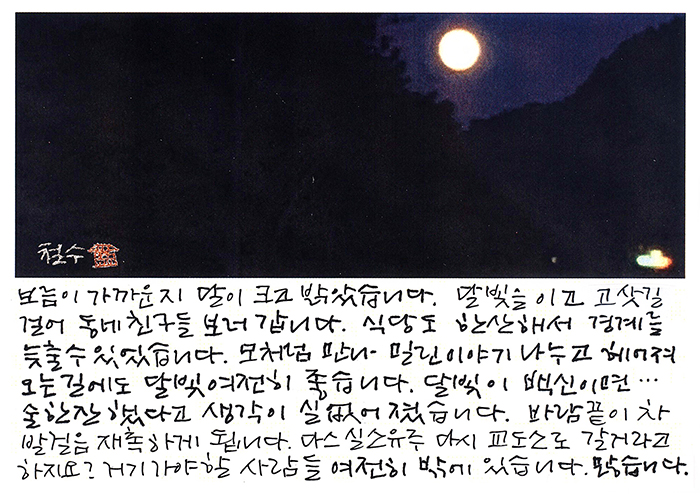 철수
보름이 가까운지 달이 크고 밝았습니다. 달빛을 이고 고삿길
걸어 동네친구들 보러 갑니다. 식당도 한산해서 경계를
늦출수 있었습니다. 모처럼 만나 밀린이야기 나누고 헤어져
오는길에도 달빛여전히 좋습니다. 달빛이 백신이면…
술한잔 했다고 생각이 실없어졌습니다. 바람끝이 차
발걸음 재촉하게 됩니다. 다스실소유주 다시 교도소로 갈거라고
하지요? 거기가야할 사람들 여전히 밖에 있습니다. 많습니다.